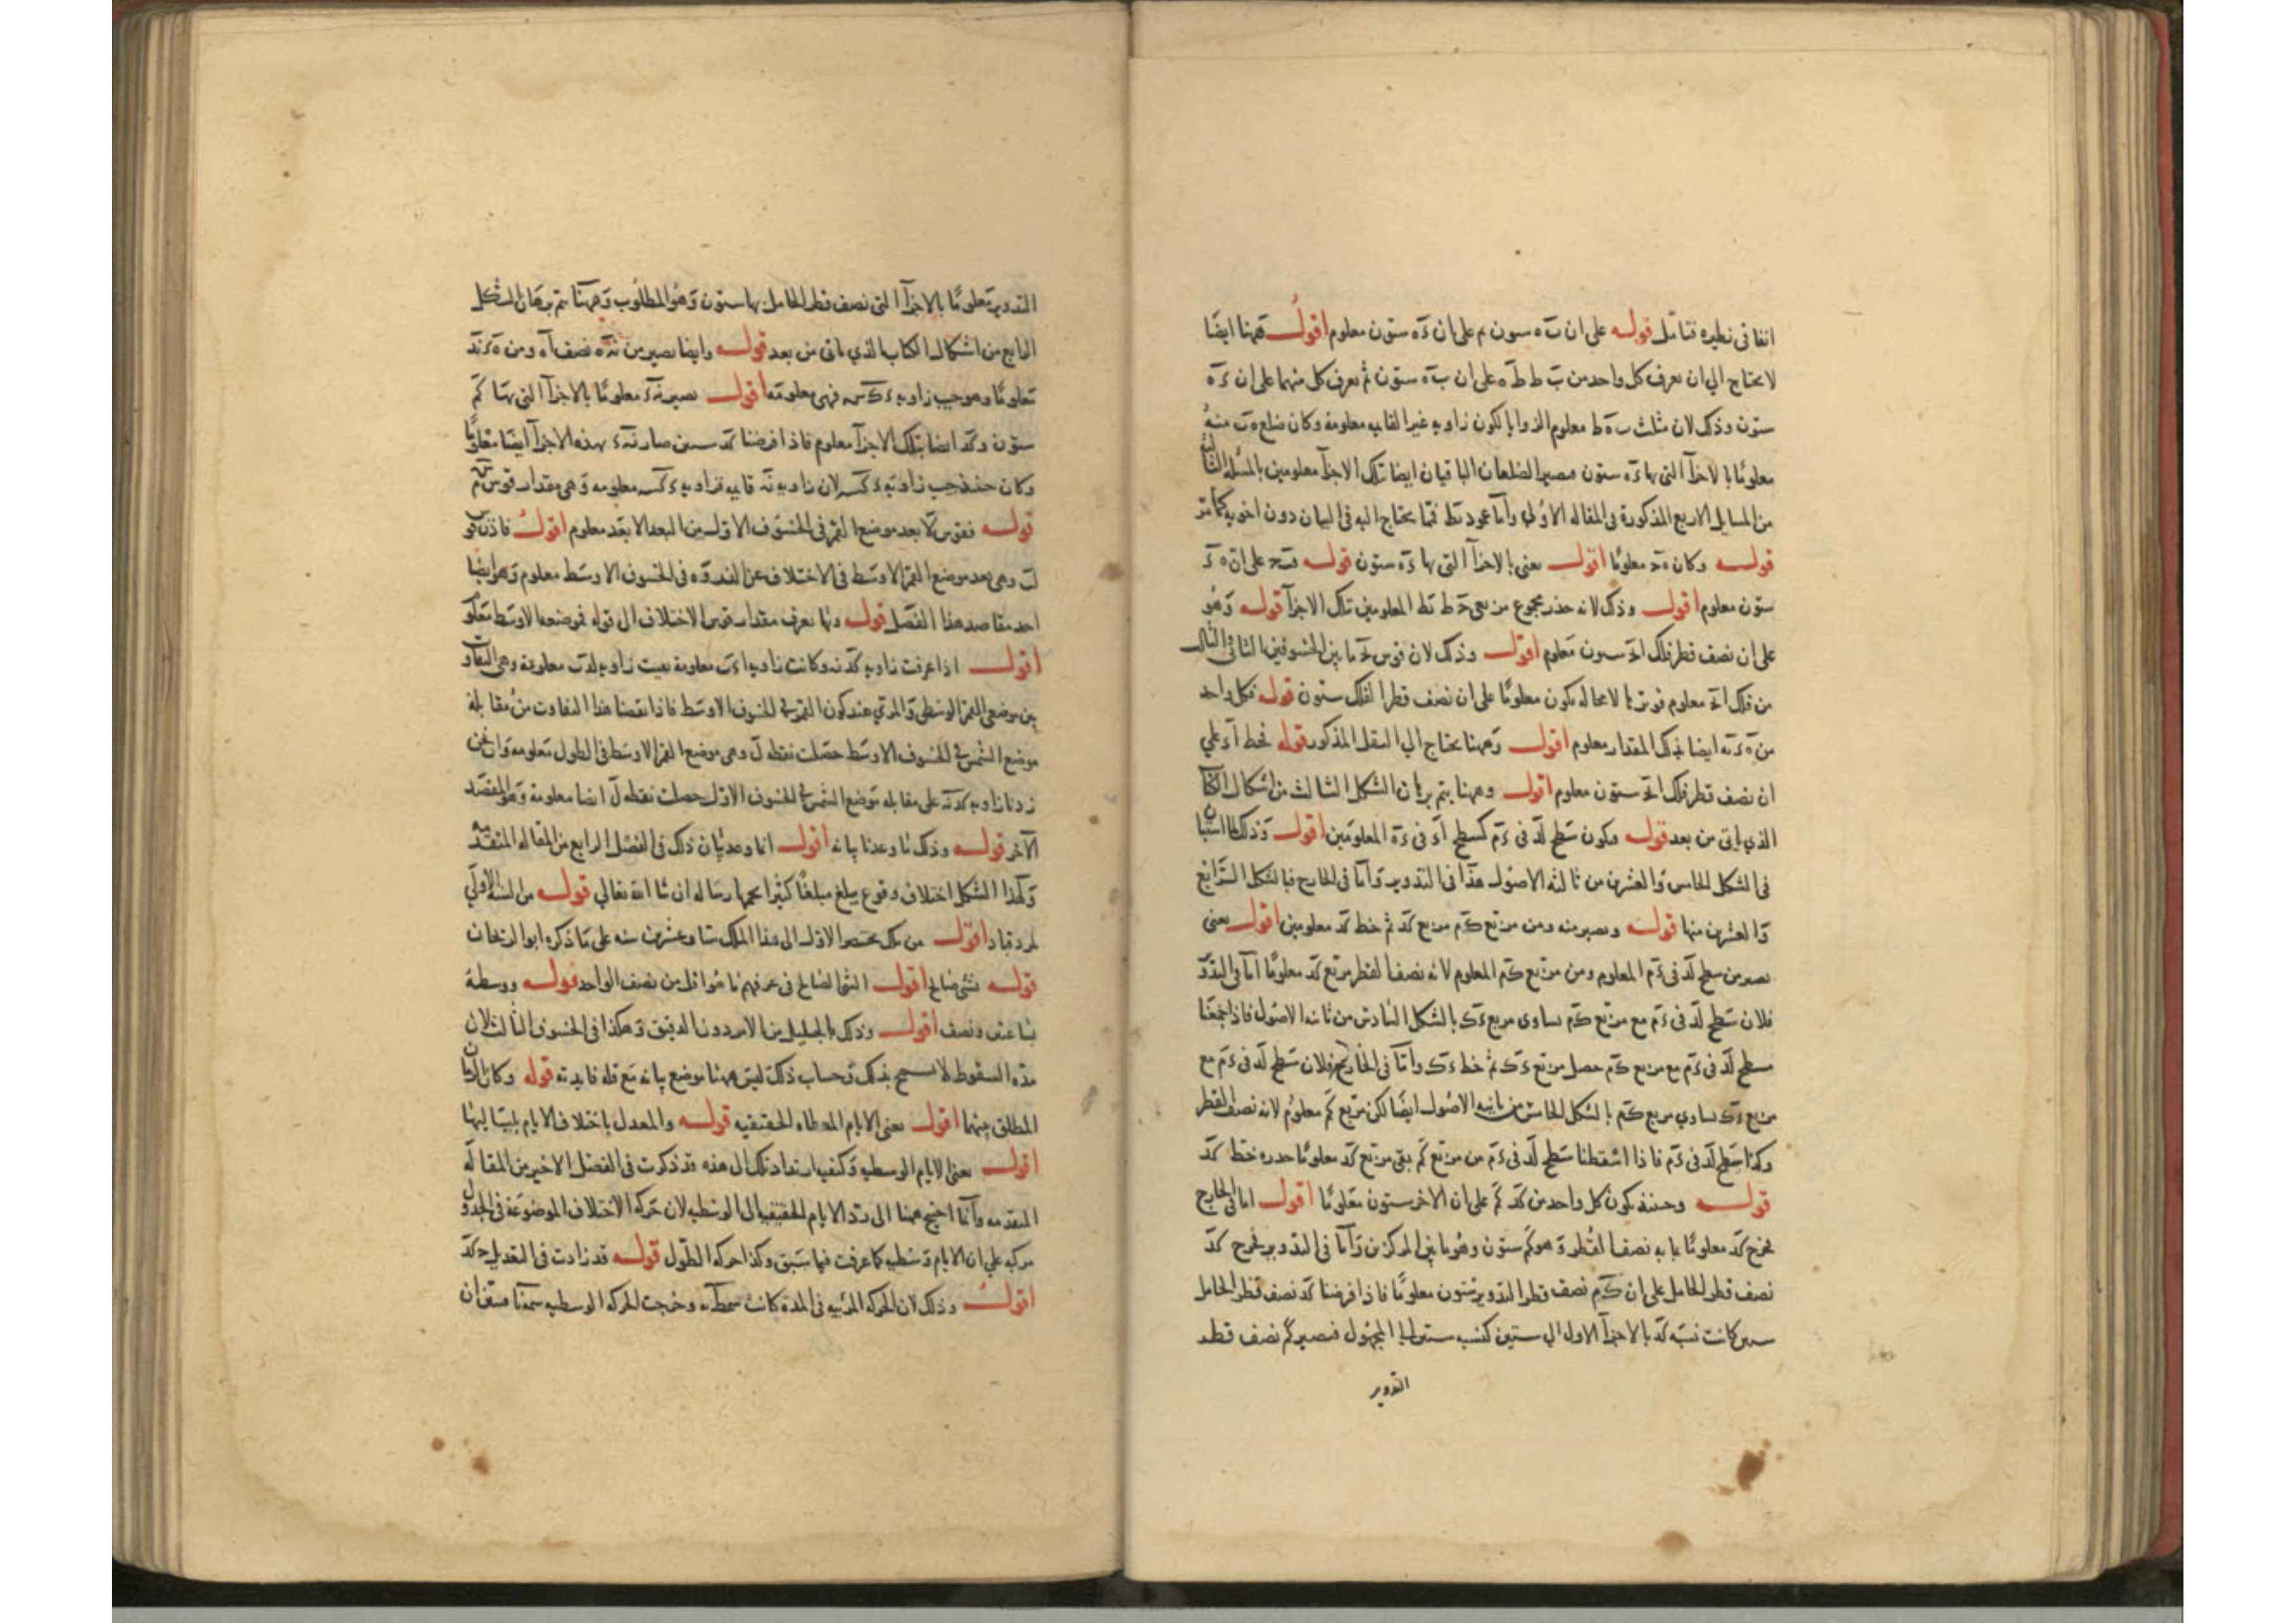 انفا فى نظيره فتامل قوله على ان ب ه ستون ثم على ان ء ه ستون معلوم اقول فههنا ايضا
لا يحتاج الى ان نعرف كل واحد من ب ط ط ه على ان ب ه ستون ثم نعرف كل منهما على ان ء ه
ستون وذلك لان مثلث ب ه ط معلوم الزوايا لكون زاويه غير القايمه معلومة وكان ضلع ه ب منه
معلوما بالاجزآ التى بها ء ه ستون فيصير الضلعان الباقيان ايضا بتلك الاجزآ معلومين بالمسئلة الثانية
من المسايل الاربع المذكورة فى المقاله الاولى وأما عمود ب ط فمما يحتاج اليه فى البيان دون اخويه كما مر
قوله وكان ه ح معلومًا اقول يعنى بالاجزآ التى بها ء ه ستون قوله ف ب ح على ان ه ء
ستون معلوم اقول وذلك لانه جذر مجموع مربعى ح ط ب ط المعلومين بتلك الاجزآ قوله وهو
على ان نصف قطر فلك ا ب ح ستون معلوم اقول وذلك لان قوس ب ح ما بين الخسوفين الثانى والثالث
من فلك ا ب ح معلوم فوترها لا محاله يكون معلومًا على ان نصف قطر الفلك ستون قوله فكل واحد
من ه ء ب ه ايضا بذلك المقدار معلوم اقول وههنا يحتاج الى النقل المذكور قوله فخط ا ء على
ان نصف قطر فلك ا ب ح ستون معلوم اقول وههنا يتم برهان الشكل الثالث من اشكال الكتاب
الذي ياتى من بعد قوله ويكون سطح ل د فى د م كسطح ا ء فى ء ه المعلومين اقول وذلك لما استبان
فى الشكل الخامس والعشرين من ثالثه الاصول هذا فى التدوير وأما فى الخارج فبالشكل الرابع
والعشرين منها قوله ويصير منه ومن مربع ك م مربع ك د ثم خط ك د معلومين اقول يعنى
يصير من سطح ل د فى د م المعلوم ومن مربع ك م المعلوم لانه نصف القطر مربع ك د معلومًا اما فى التدوير
فلان سطح ل د فى د م مع مربع ك م يساوى مربع د ك بالشكل السادس من ثانيه الاصول فاذا جمعنا
سطح ل د فى د م مع مربع ك م حصل مربع د ك ثم خط د ك وأما فى الخارج فلان سطح ل د فى د م مع
مربع د ك يساوي مربع ك م بالشكل الخامس من ثانيه الاصول ايضًا لكن مربع ك م معلوم لانه نصف القطر
وكذا سطح ل د فى د م فاذا اسقطنا سطح ل د فى د م من مربع ك م بقى مربع ك د معلومًا جذره خط ك د
قوله وحينئذ يكون كل واحد من ك د ك م على ان الاخر ستون معلومًا اقول اما فى الخارج
فيخرج ك د معلومًا بما به نصف القطر وهو ك م ستون وهو ما بين المركزين وأما فى التدوير فيخرج ك د
نصف قطر الحامل على ان ك م نصف قطر التدوير ستون معلومًا فاذا فرضنا ك د نصف قطر الحامل
ستين كانت نسبة ك د بالاجزآ الاول الى ستين كنسبة ستين الى المجهول فيصير ك م نصف قطر
التدوير
التدوير معلومًا بالاجزآ التى نصف قطر الحامل بها ستون وهو المطلوب وههنا يتم برهان الشكل
الرابع من اشكال الكتاب الذي ياتى من بعد قوله وايضا يصير من
معلومًا وهو جيب زاويه فهى معلومة اقول يصير معلومًا بالاجزآ التى بها ك م
ستون و ك د ايضا بتلك الاجزآ معلوم فاذا فرضنا ك د ستين صار بهذه الاجزآ ايضا معلومًا
وكان حينئذ جيب زاوية لان زاويه قايمه فزاويه معلومه وهى مقدار قوس
قوله فقوس بعد موضع القمر فى الخسوف الاول من البعد الابعد معلوم اقول فاذن قوس
ل ب وهى بعد موضع القمر الاوسط فى الاختلاف عن الذروه فى الخسوف الاوسط معلوم وهو ايضا
احد مقاصد هذا الفصل قوله وبما يعرف مقدار قوس الاختلاف الى قوله فموضعه الاوسط معلوم
اقول اذا عرفت زاويه وكانت زاويه ا د ب معلومة بقيت زاويه ل د ب معلومة وهى التفاوت
بين موضعى القمر الوسطى والمرئي عند كون القمر فى الخسوف الاوسط فاذا نقصنا هذا التفاوت من مقابلة
موضع الشمس فى الخسوف الاوسط حصلت نقطه ل وهى موضع القمر الاوسط فى الطول معلومه وان نحن
زدنا زاويه على مقابله موضع الشمس فى الخسوف الاول حصلت نقطه ل ايضا معلومة وهو المقصد
الآخر قوله وذلك ما وعدنا بيانه اقول انما وعد بيان ذلك فى الفصل الرابع من المقاله المتقدمه
ولهذا الشكل اختلاف وقوع يبلغ مبلغًا كثيرا يجمعها رساله ان شا الله تعالى قوله من السنه الاولى
لمردقباد اقول من ملك بختنصر الاول الى هذا الملك ستا وعشرين سنه على ما ذكره ابو الريحان
قوله بشئ صالح اقول الشئ الصالح فى عرفهم ما هو اقل من نصف الواحد قوله ووسطه
بساعتين ونصف اقول وذلك بالجليل من الامر دون الدقيق وهكذا فى الخسوف الثالث لان
مده السقوط لا تسمح بذلك وحساب ذلك ليس ههنا موضع بيانه مع قله فايدته قوله وكان الزمان
المطلق بينهما اقول يعنى الايام المعطاه الحقيقيه قوله والمعدل باختلاف الايام بلياليها
اقول يعنى الايام الوسطيه وكيف استفاد تلك الى هذه قد ذكرت فى الفصل الاخير من المقاله
المتقدمه وأنما احتيج ههنا الى رد الايام الحقيقيه الى الوسطيه لان حركه الاختلاف الموضوعة فى الجدول
مركبه على ان الايام وسطيه كما عرفت فيما سبق وكذا حركه الطول قوله قد زادت فى التعديل
اقول وذلك لان الحركه المرئيه فى المدة كانت وخرجت الحركه الوسطيه فنقصان